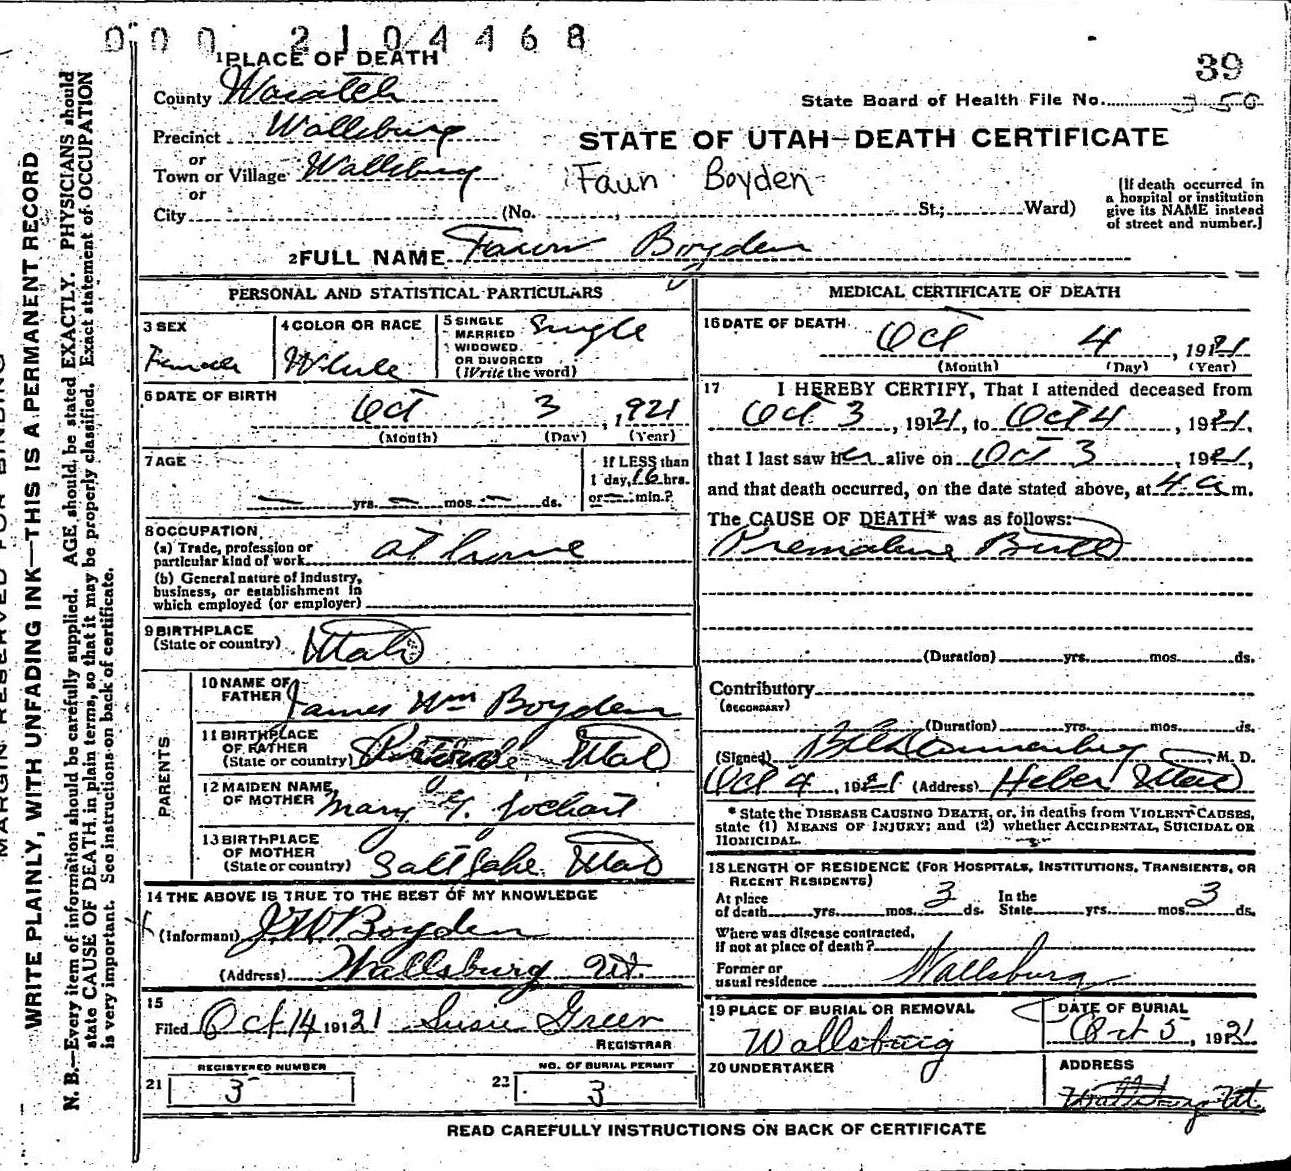 000 2104468
39
1 PLACE OF DEATH
County Wasatch
State Board of Health File No. 350
Precinct Wallsburg
or
Town or Village Wallsburg
or
City (No. , St.; Ward)
STATE OF UTAH—DEATH CERTIFICATE
Faun Boyden
[If death occurred in
a hospital or institution
give its NAME instead
of street and number.]
2 FULL NAME Faun Boyden
PERSONAL AND STATISTICAL PARTICULARS
3 SEX
Female
4 COLOR OR RACE
White
5 SINGLE
MARRIED
WIDOWED
OR DIVORCED
(Write the word)
Single
6 DATE OF BIRTH
Oct 3, 1921
(Month) (Day) (Year)
7 AGE
— yrs. — mos. — ds.
If LESS than
1 day, 16 hrs.
or — min.?
8 OCCUPATION
(a) Trade, profession or
particular kind of work at home
(b) General nature of industry,
business, or establishment in
which employed (or employer)
9 BIRTHPLACE
(State or country) Utah
PARENTS
10 NAME OF
FATHER James Wm Boyden
11 BIRTHPLACE
OF FATHER
(State or country) Utah
12 MAIDEN NAME
OF MOTHER Mary
13 BIRTHPLACE
OF MOTHER
(State or country) Salt Lake Utah
14 THE ABOVE IS TRUE TO THE BEST OF MY KNOWLEDGE
(Informant) J.W. Boyden
(Address) Wallsburg Ut.
15
Filed Oct 14 1921 Susie Green
REGISTRAR
21 REGISTERED NUMBER
3
22 NO. OF BURIAL PERMIT
3
MEDICAL CERTIFICATE OF DEATH
16 DATE OF DEATH
Oct 4, 1921
(Month) (Day) (Year)
17 I HEREBY CERTIFY, That I attended deceased from
Oct 3, 1921, to Oct 4, 1921,
that I last saw her alive on Oct 3, 1921,
and that death occurred, on the date stated above, at 4 a m.
The CAUSE OF DEATH* was as follows:
Premature Birth
(Duration) yrs. mos. ds.
Contributory
(SECONDARY)
(Duration) yrs. mos. ds.
(Signed) M. D.
Oct 4, 1921 (Address) Heber Utah
* State the DISEASE CAUSING DEATH, or, in deaths from VIOLENT CAUSES,
state (1) MEANS OF INJURY; and (2) whether ACCIDENTAL, SUICIDAL OR
HOMICIDAL.
18 LENGTH OF RESIDENCE (FOR HOSPITALS, INSTITUTIONS, TRANSIENTS, OR
RECENT RESIDENTS)
At place
of death yrs. mos. 3 ds.
In the
State yrs. mos. 3 ds.
Where was disease contracted,
if not at place of death?
Former or
usual residence Wallsburg
19 PLACE OF BURIAL OR REMOVAL
Wallsburg
DATE OF BURIAL
Oct 5, 1921
20 UNDERTAKER
ADDRESS
Wallsburg Ut.
READ CAREFULLY INSTRUCTIONS ON BACK OF CERTIFICATE
MARGIN RESERVED FOR BINDING
WRITE PLAINLY, WITH UNFADING INK—THIS IS A PERMANENT RECORD
N. B.—Every item of information should be carefully supplied. AGE should be stated EXACTLY. PHYSICIANS should
state CAUSE OF DEATH in plain terms, so that it may be properly classified. Exact statement of OCCUPATION
is very important. See instructions on back of certificate.